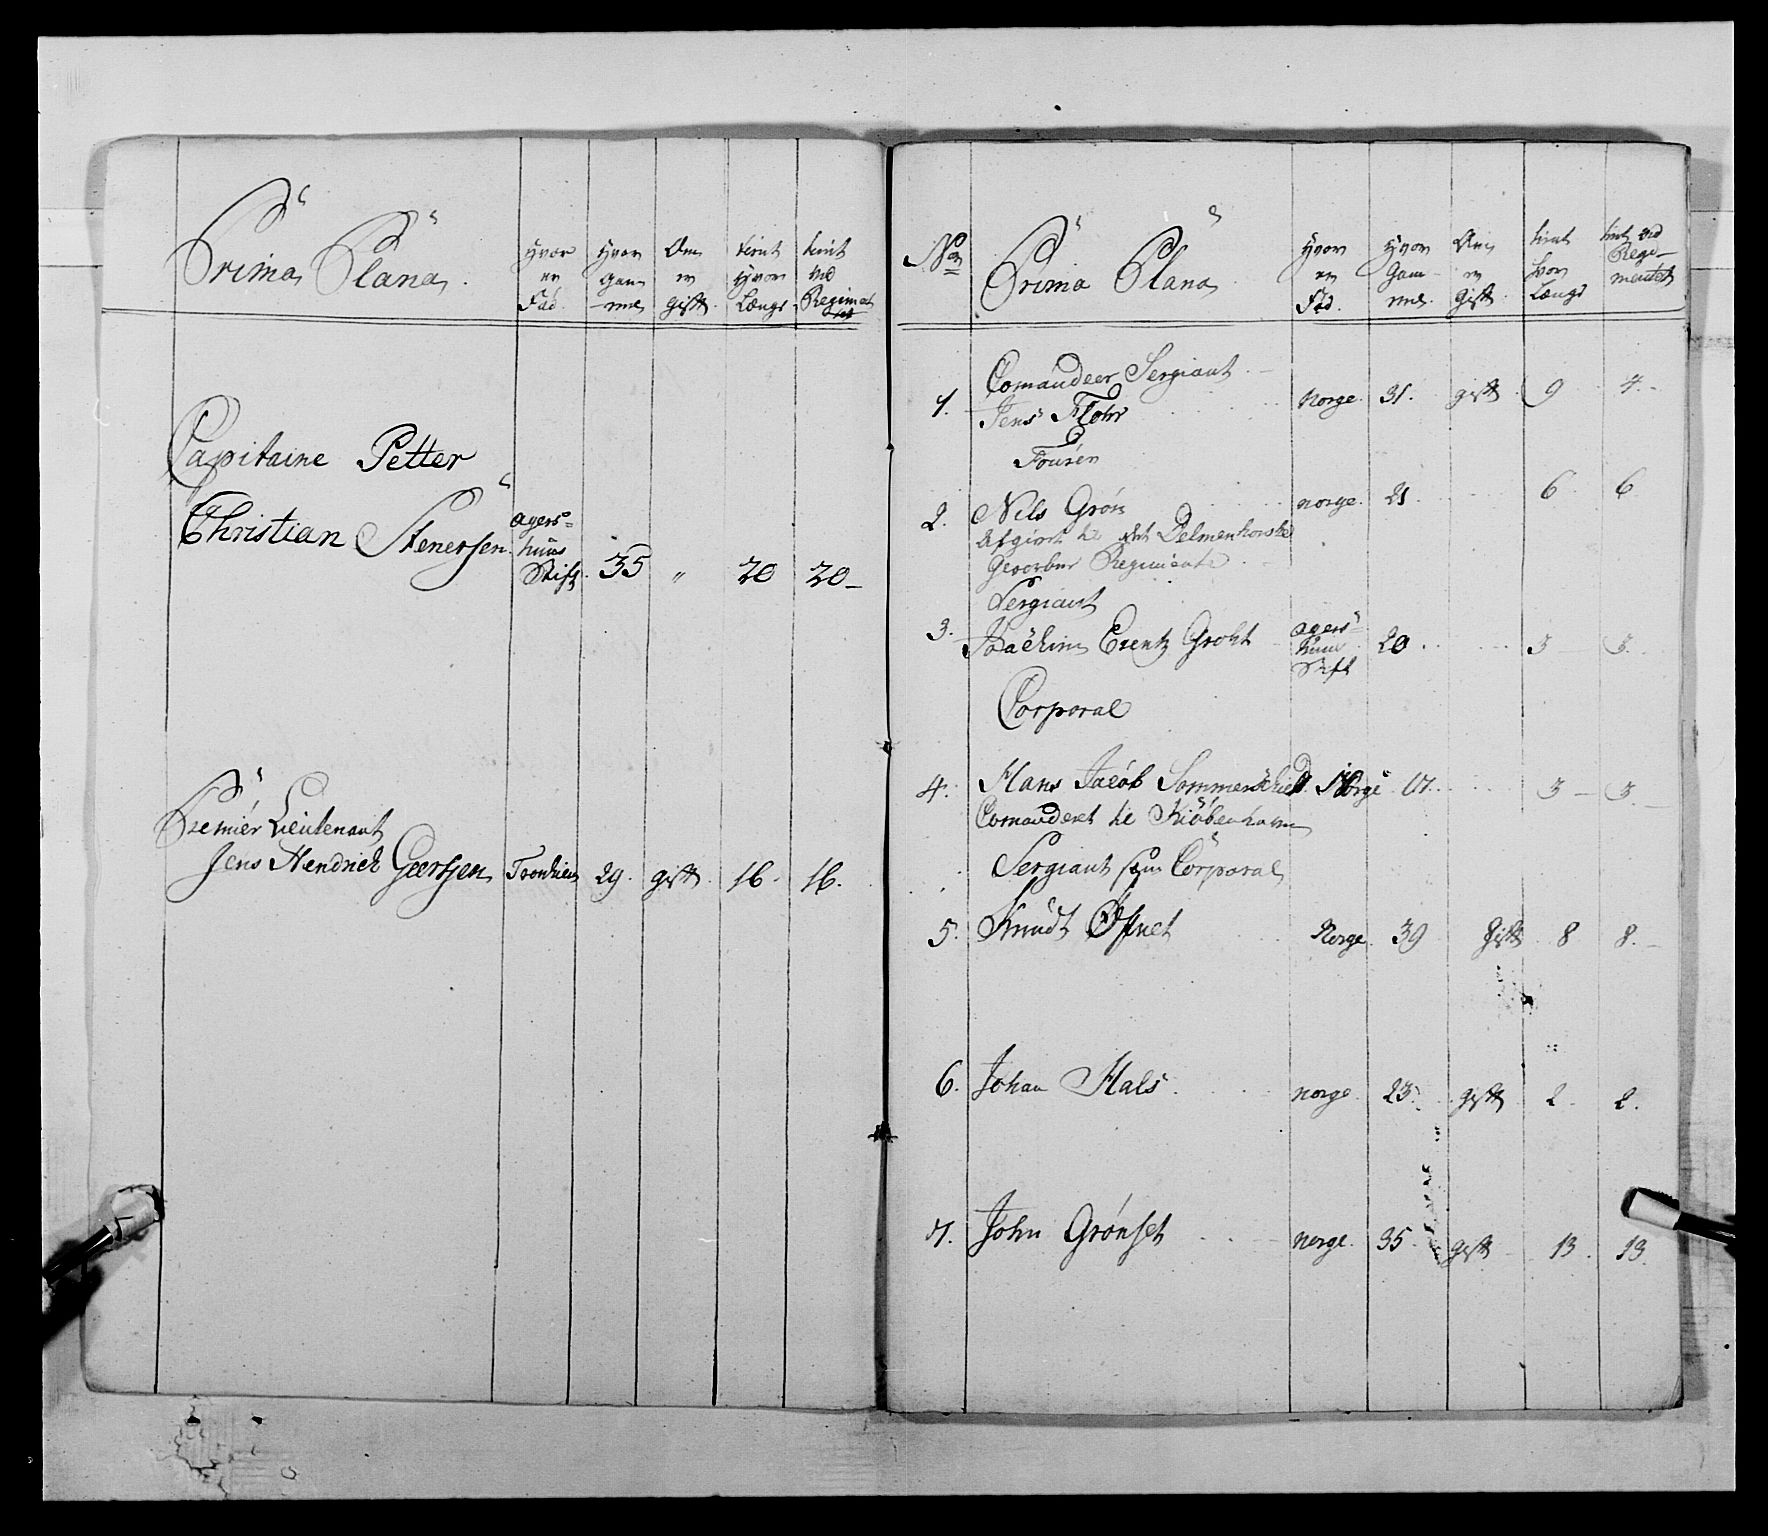 Prima Plana.
Hvor er Fød.
Hvor Gam-mel
Om er gift.
tient Hvor Længe
tient ved Regimentet
Capitaine Petter
Christian Stenersen. agers= huus Stift. 35 " 20 20 –
Premier Lieutenant
Jens Hendrich Geertsen Tronhiem 29. gift. 16. 16.
No
Prima Plana
Hvor er Fød.
Hvor Gam-mel.
Om er Gift.
tient hvor Længe
tient ved Rege-mentet
Comandeer Sergiant
1. Jens Flohr norge. 31. gift. 9 4.
Fourér
2. Nils Grön norge. 21 6 6
Afgivet til det Delmenhorske
Gevorbne Regimente
Sergiant
3. Joachim Erentz Groht agers= huus Stift 20 3 3.
Corporal
4. Hans Jacob Sommerschield Norge 17. 3 – 3. –
Comanderet til Kiöbenhavn
Sergiant som Corporal
5. Knudt Øfnet Norge. 39 Gift 8 8. –
6. Johan Hals norge. 23. gift 2 2.
7. John Grönset norge. 35 gift 13. 13.